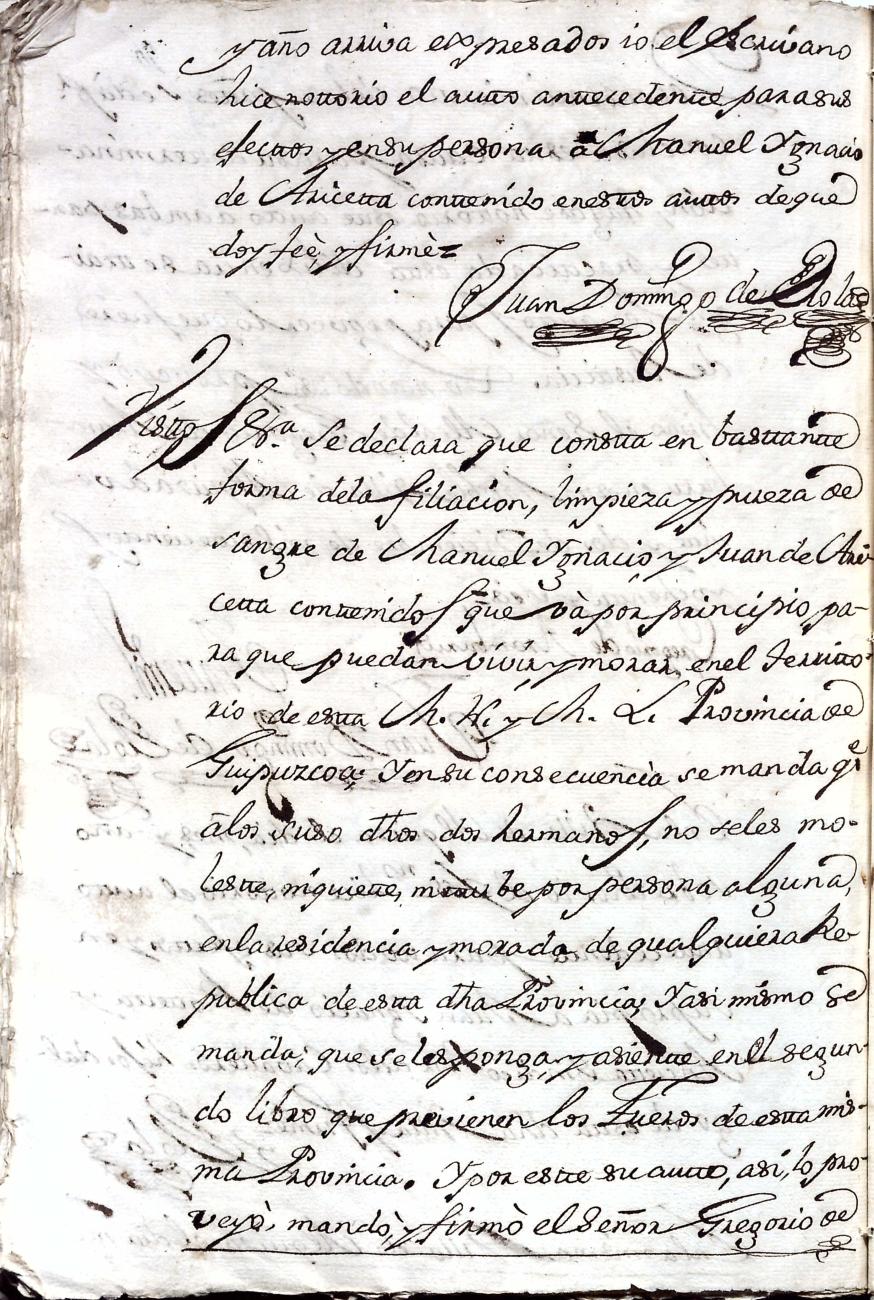 y año arriva expresados io el Escrivano
hice nottorio el autto anttecedentte para sus
efecttos y en su persona â Manuel Ygnacio
de Aricetta conttenido en esttos auttos de que
doy feè, y firmè=
Juan Domingo de
Visttos &.ª Se declara que constta en basttantte
forma dela filiacion, limpieza y pureza de
sangre de Manuel Ygnacio y Juan de Ari-
cetta conttenidos q̃ue và por principio, pa-
ra que puedan vivir y morar, en el territto-
rio de estta M. N. y M. L. Provincia de
Guipuzcoa; Y en su consecuencia se manda q.e
âlos suso dhos dos hermanos, no seles mo-
lestte, inquiette, ni tturbe por persona alguna,
enla residencia y morada de qualquiera Re-
publica de estta dha Provincia; Y asi mismo se
manda, que se les ponga, y asientte en el segun-
do libro que previenen los Fueros de estta mis-
ma Provincia. Y por estte su autto, asi, lo pro-
veyò, mandò, y firmò el Señor Gregorio de